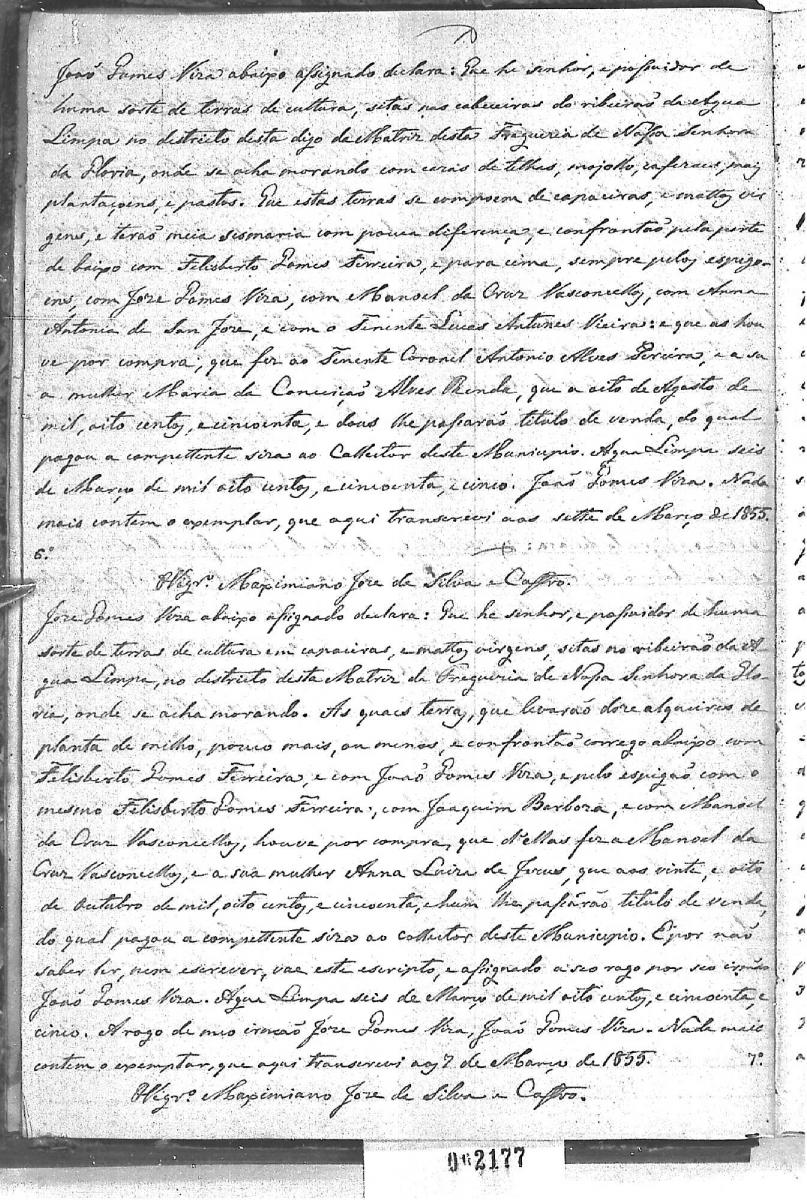 João Gomes Vira abaixo assignado declara: Que he senhor, e possuidor de
huma sorte de terras de cultura, sitas nas cabeceiras do ribeirão da Agua
Limpa no districto desta digo da Matriz desta Freguezia de Nossa Senhora
da Gloria, onde se acha morando com cazas de telhas, mojollo, cafezaes, mais
plantaçoens, e pastos. Que estas terras se compoem de capoeiras, e mattos vir
gens, e terão meia sesmaria com pouca diferença, e confrontão pela parte
de baixo com Felisberto Gomes Ferreira, e para cima, sempre pelos espigo-
ens, com Joze Gomes Vira, com Manoel da Cruz Vasconcellos, com Anna
Antonia de San Joze, e com o Tenente Lucas Antunes Vieira: e que as hou
ve por compra, que fez ao Tenente Coronel Antonio Alves Pereira, e a su
a mulher Maria da Conceição Alves, que a oito de Agosto de
mil, oito centos, e cincoenta, e dous lhe passarão titulo de venda, do qual
pagou a compettente siza ao Collector deste Municipio. Agua Limpa seis
de Março de mil oito centos, e cincoenta, e cinco. João Gomes Vira. Nada
mais contem o exemplar, que aqui transcrevi aos sette de Março de 1855.
6.º
Vigr.º Maximiano Joze da Silva e Castro.
Joze Gomes Vira abaixo assignado declara: Que he senhor, e possuidor de huma
sorte de terras de cultura em capoeiras, e mattos virgens, sitas no ribeirão da A
gua Limpa, no districto desta Matriz da Freguezia de Nossa Senhora da Glo
ria, onde se acha morando. As quaes terras, que levarão doze alqueires de
planta de milho, pouco mais, ou menos, e confrontão corrego abaixo com
Felisberto Gomes Ferreira, e com João Gomes Vira, e pelo espigão com o
mesmo Felisberto Gomes Ferreira:, com Joaquim Barboza, e com Manoel
da Cruz Vasconcellos, houve por compra, que d'ellas fez a Manoel da
Cruz Vasconcellos, e a sua mulher Anna Luiza de Jezus, que aos vinte, e oito
de Outubro de mil, oito centos, e cincoenta, e hum lhe passárão titulo de venda,
do qual pagou a compettente siza ao collector deste Municipio. E por não
saber ler, nem escrever, vae este escripto, e assignado a seo rogo por seo irmão
João Gomes Vira. Agua Limpa seis de Março de mil oito centos, e cincoenta, e
cinco. A rogo de meo irmão Joze Gomes Vira, João Gomes Vira. Nada mais
contem o exemplar, que aqui transcrevi aos 7 de Março de 1855. 7.º
Vigr.º Maximiano Joze da Silva e Castro.
002177